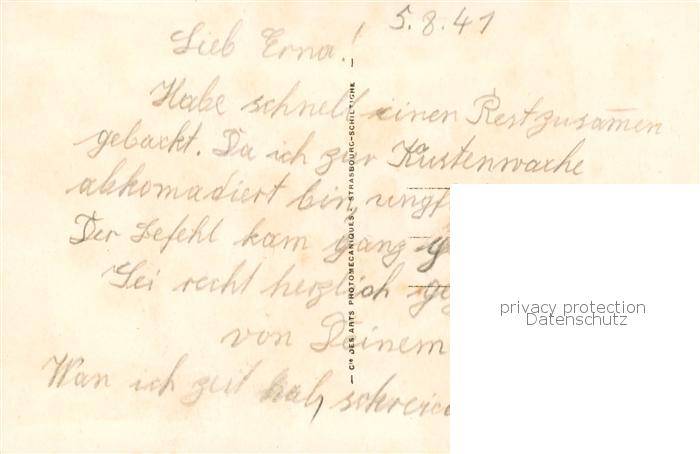 5.8.41
Lieb Erna!
Habe schnell einen Rest zusammen
gebackt. Da ich zur Küstenwache
abkomadiert bin,
Der Befehl kam ganz
Sei recht herzlich
von Deinem
Wan ich zeit hab,
— Cie DES ARTS PHOTOMECANIQUES, STRASBOURG-SCHILTIGHEIM —
privacy protection
Datenschutz